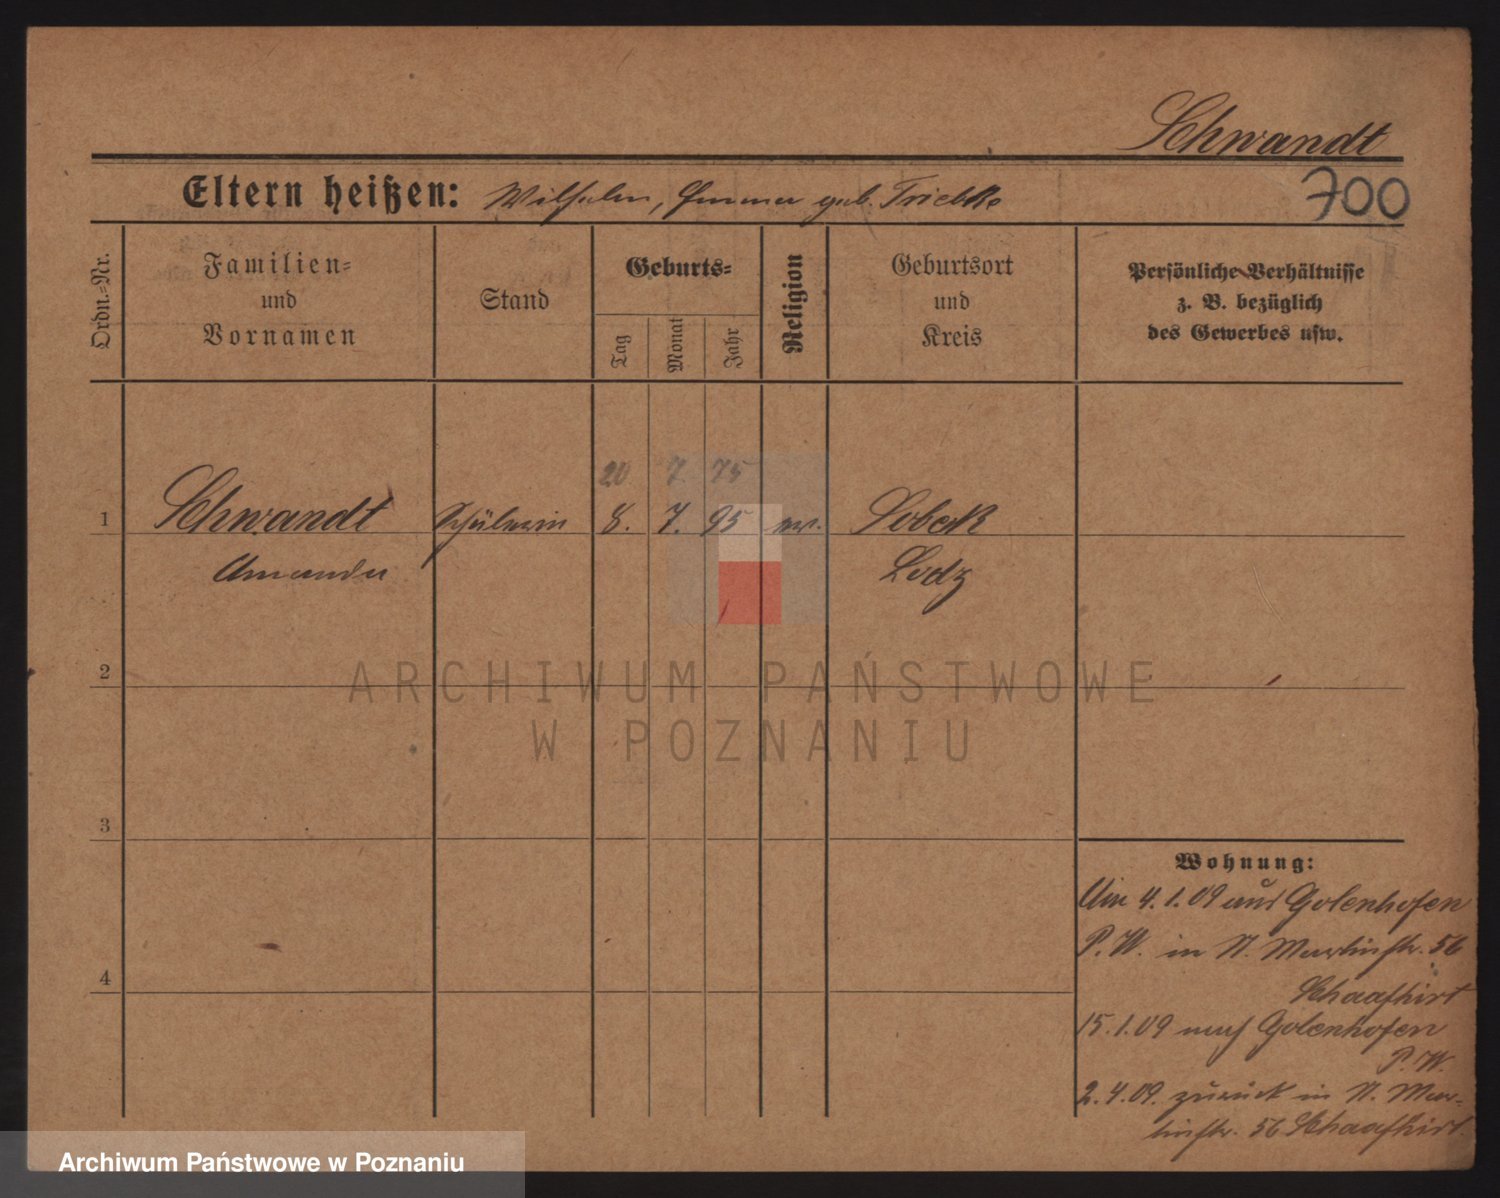 Schwandt
Eltern heißen: Wilhelm, Emma geb. Triebke
700
Ordn.-Nr.
Familien-
und
Vornamen
Stand
Geburts-
Tag
Monat
Jahr
Religion
Geburtsort
und
Kreis
Persönliche Verhältnisse
z. B. bezüglich
des Gewerbes usw.
20 7. 75
1 Schwandt Schülerin 8. 7. 95 ev. Lobeck
Amanda Lodz
2
ARCHIWUM PAŃSTWOWE
W POZNANIU
3
Wohnung:
Am 4.1.09 aus Golenhofen
P.W. in St. Martinstr. 56
4
Schaafhirt
15.1.09 nach Golenhofen
P.W.
2.4.09. zurück in St. Mar-
tinstr. 56 Schaafhirt.
Archiwum Państwowe w Poznaniu